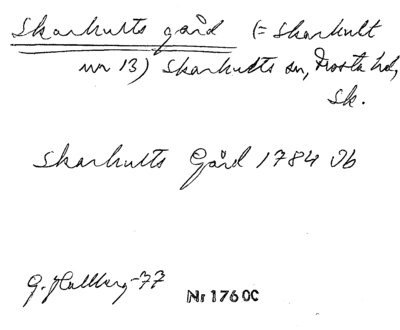 Skarhults gård (= Skarhult
nr 13) Skarhults sn, Frosta hd,
Sk.
Skarhults Gård 1784 Vb
G. Hallberg -77
Nr 1760C